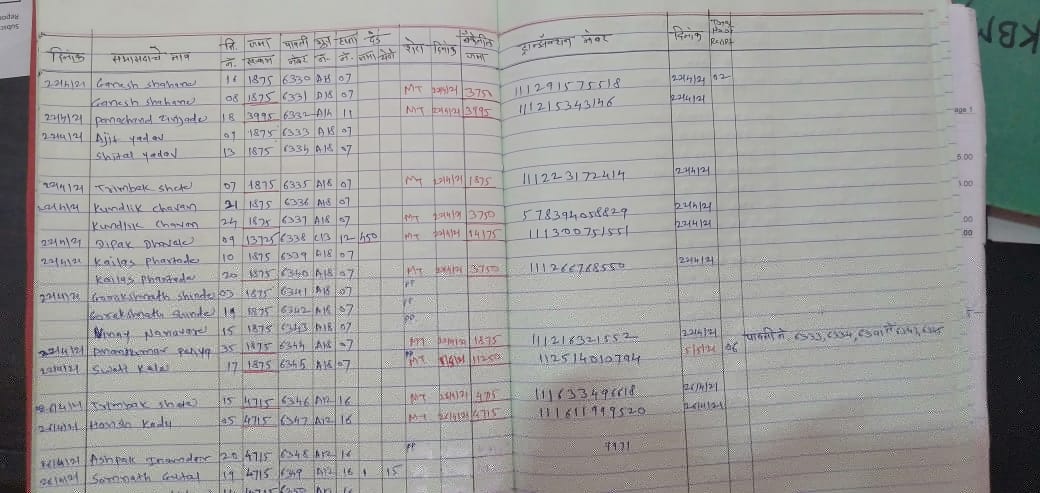 दिनांक सभासदाचे नाव नि. नं. जमा रक्कम पावती नंबर ग्रुप नं. हप्ता नं. दंड जमा येणे शेरा दिनांक बँकेतील जमा ट्रान्झॅक्शन नंबर दिनांक Total No of Receipt
22/4/21 Ganesh shahane 16 1875 6330 A18 07
Ganesh shahane 08 1875 6331 A18 07 MT 22/4/21 3750 111291575518 22/4/21 02
22/4/21 18 3995 6332 A14 11 MT 22/4/21 3995 111215343146 22/4/21
22/4/21 Ajit yadav 09 1875 6333 A18 07
Shital yadav 13 1875 6334 A18 07
22/4/21 Trimbak shete 07 1875 6335 A18 07 MT 22/4/21 1875 111223172414 22/4/21
22/4/21 Kundlik chavan 21 1875 6336 A18 07
Kundlik chavan 24 1875 6337 A18 07 MT 22/4/21 3750 578394058829 22/4/21
22/4/21 Dipak Dhavale 09 13725 6338 C13 12 450 MT 22/4/21 14175 111300751551 22/4/21
22/4/21 Kailas 10 1875 6339 A18 07
Kailas 20 1875 6340 A18 07 MT 22/4/21 3750 111266768550 22/4/21
22/4/21 Gorakshnath Shinde 03 1875 6341 A18 07 PP
Gorakshnath Shinde 19 1875 6342 A18 07 PP
Vinay Nanavare 15 1875 6343 A18 07 PP
22/4/21 35 1875 6344 A18 07 MT 22/4/21 1875 111216321552 22/4/21 पावती नं. 6333, 6334, 6341 ते 6343, 6345
22/4/21 Swati Kale 17 1875 6345 A18 07 PP MT 11250 112514010794 5/5/21 06
26/4/21 Trimbak shete 15 4715 6346 A12 16 MT 26/4/21 4715 111633496618 26/4/21
26/4/21 Harish Kadu 05 4715 6347 A12 16 MT 26/4/21 4715 111611999520 26/4/21
26/4/21 Ashpak Inamdar 20 4715 6348 A12 16 PP
26/4/21 Somnath Gutal 19 4715 6349 A12 16 1 15
4715 6350 A12 16
age 1
5.00
KBN